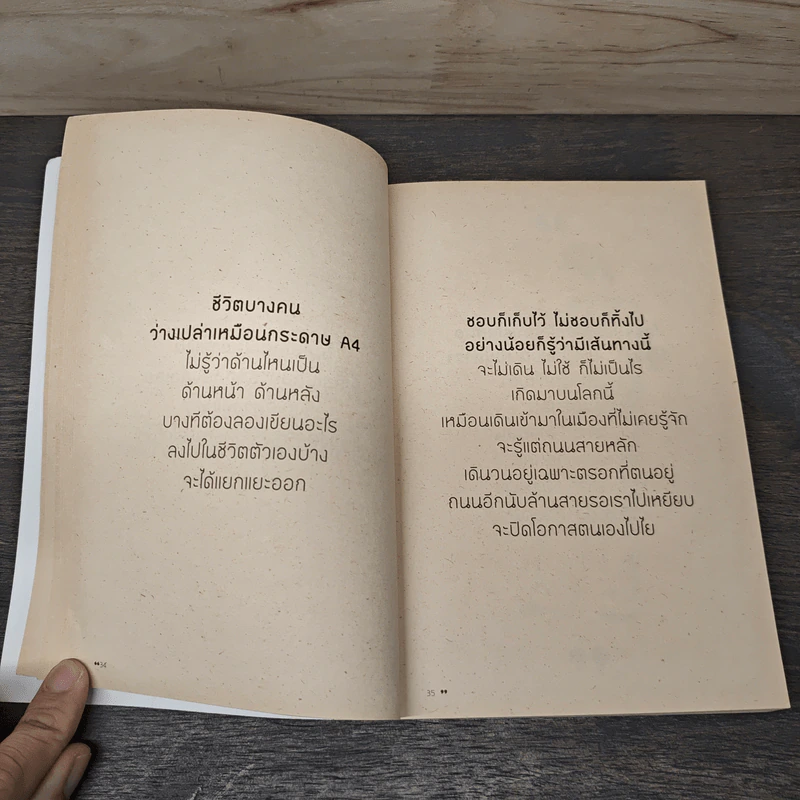 ชีวิตบางคน
ว่างเปล่าเหมือนกระดาษ A4
ไม่รู้ว่าด้านไหนเป็น
ด้านหน้า ด้านหลัง
บางทีต้องลองเขียนอะไร
ลงไปในชีวิตตัวเองบ้าง
จะได้แยกแยะออก
❝34
ชอบก็เก็บไว้ ไม่ชอบก็ทิ้งไป
อย่างน้อยก็รู้ว่ามีเส้นทางนี้
จะไม่เดิน ไม่ใช้ ก็ไม่เป็นไร
เกิดมาบนโลกนี้
เหมือนเดินเข้ามาในเมืองที่ไม่เคยรู้จัก
จะรู้แต่ถนนสายหลัก
เดินวนอยู่เฉพาะตรอกที่ตนอยู่
ถนนอีกนับล้านสายรอเราไปเหยียบ
จะปิดโอกาสตนเองไปไย
35 ❞